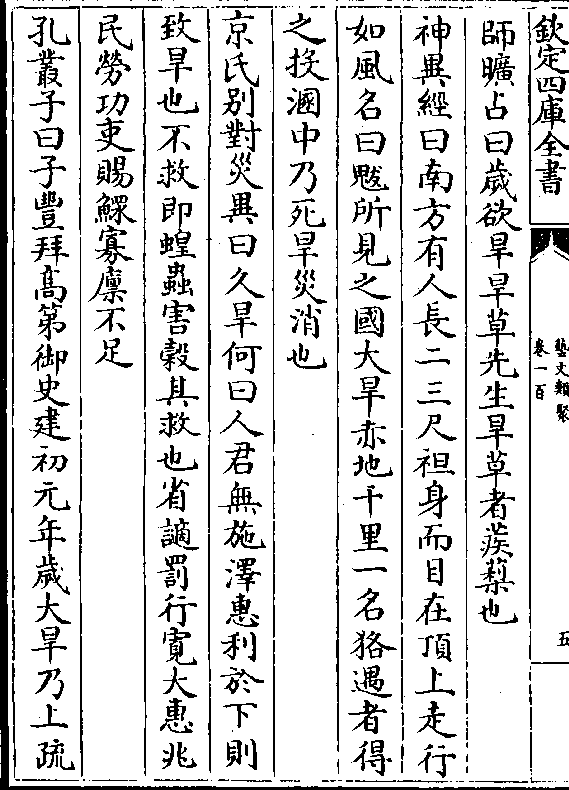 欽定四庫全書
藝文類聚
卷一百
五
師曠占曰歳欲旱旱草先生旱草者蒺䔧也
神異經曰南方有人長二三尺袒身而目在頂上走行
如風名曰魃所見之國大旱赤地千里一名狢遇者得
之投溷中乃死旱災消也
京氏别對災異曰久旱何曰人君無施澤惠利於下則
致旱也不救即蝗蟲害糓其救也省讁罰行寛大惠兆
民勞功吏賜鰥寡廪不足
孔叢子曰子豐拜髙第御史建初元年歳大旱乃上疏